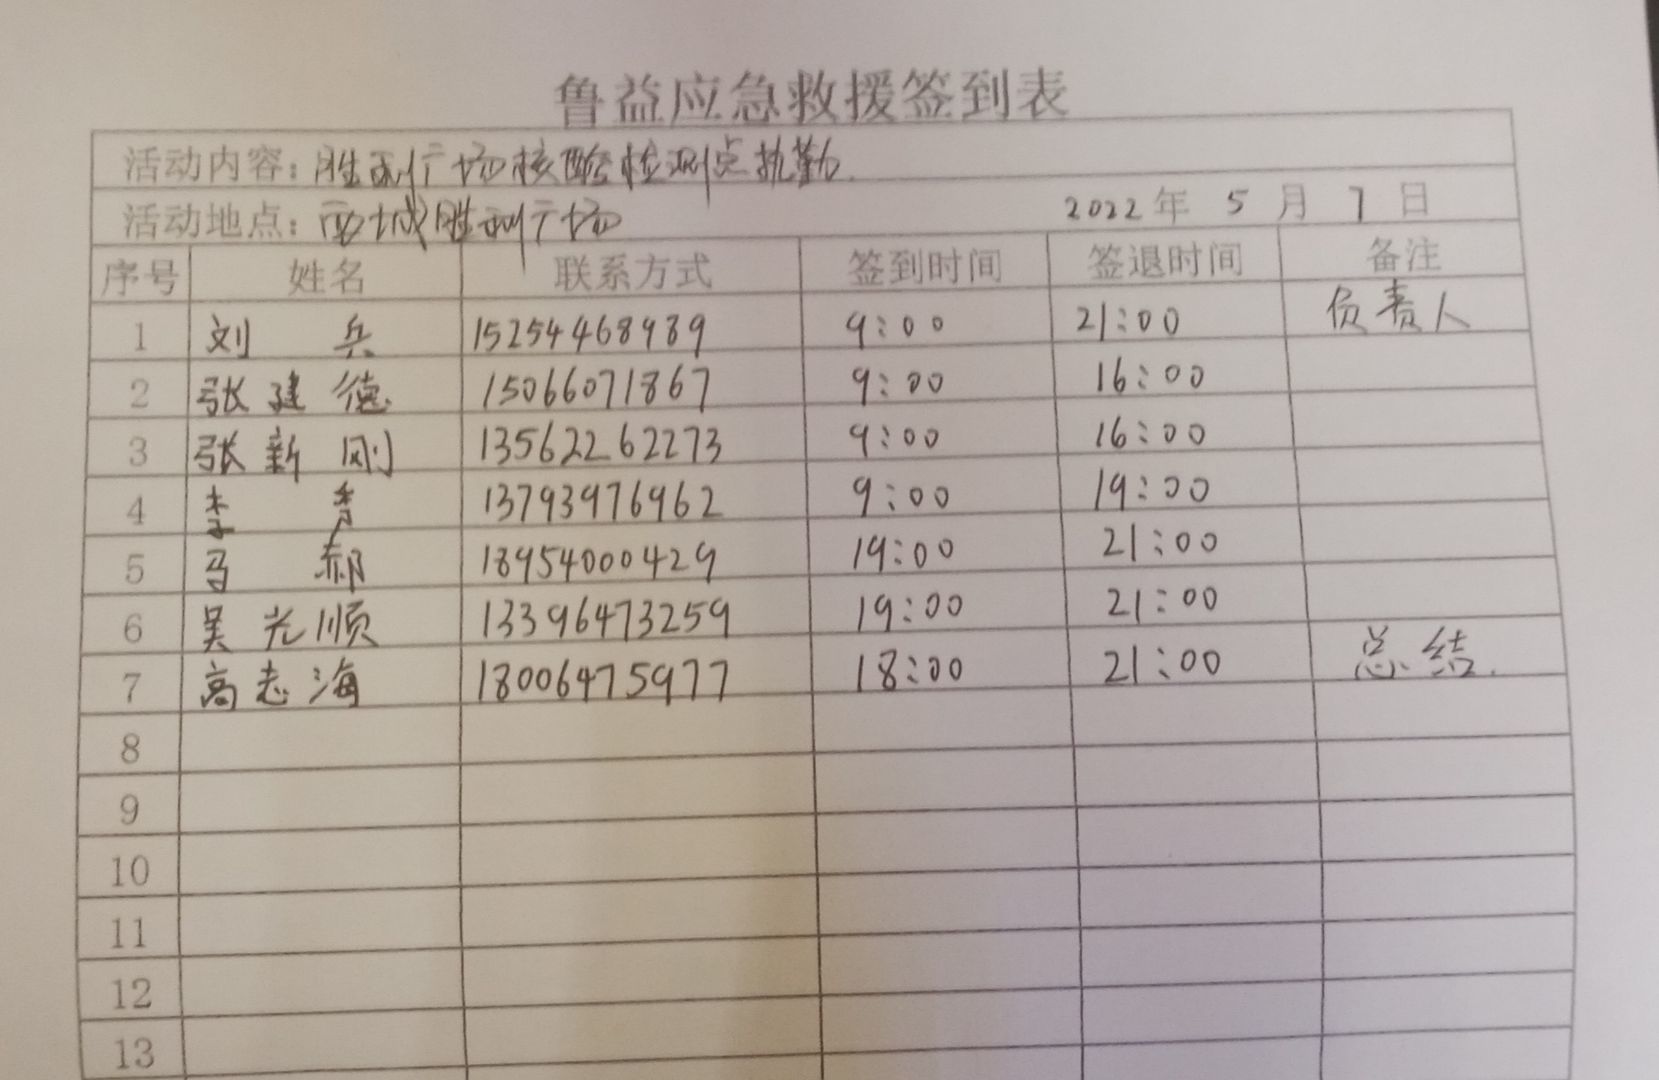 鲁益应急救援签到表
活动内容：胜利广场核酸检测点执勤.
活动地点：西城胜利广场 2022年 5 月 7 日
序号 姓名 联系方式 签到时间 签退时间 备注
1 刘 兵 15254468989 9:00 21:00 负责人
2 张建德 15066071867 9:00 16:00
3 张新刚 13562262273 9:00 16:00
4 李 13793976962 9:00 19:00
5 马 郝 18954000429 19:00 21:00
6 吴光顺 13396473259 19:00 21:00
7 高志海 18006475977 18:00 21:00 总结.
8
9
10
11
12
13